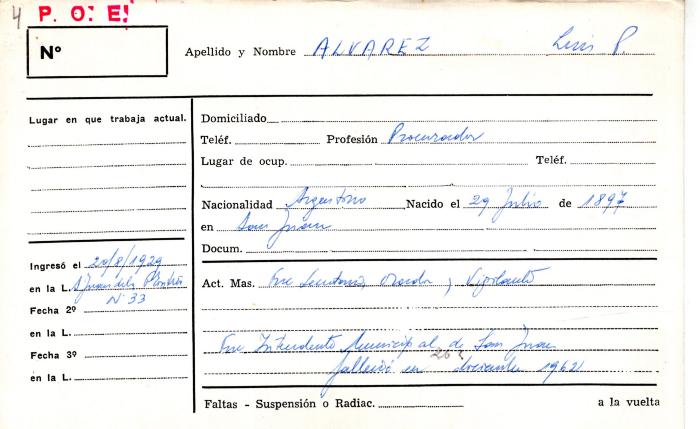 4
P. O. E.
Nº
Apellido y Nombre ALVAREZ Luis P.
Lugar en que trabaja actual.
Domiciliado
Teléf. Profesión Procurador
Lugar de ocup. Teléf.
Nacionalidad Argentino Nacido el 29 Julio de 1897
en San Juan
Docum.
Ingresó el 20/8/1929
en la L. San Juan de la Frontera
Nº 33
Fecha 2º
en la L.
Fecha 3º
en la L.
Act. Mas. Fue Secretario, Orador y Vigilante
Fue Intendente Municipal de San Juan
falleció en 26 diciembre 1962
Faltas - Suspensión o Radiac. a la vuelta